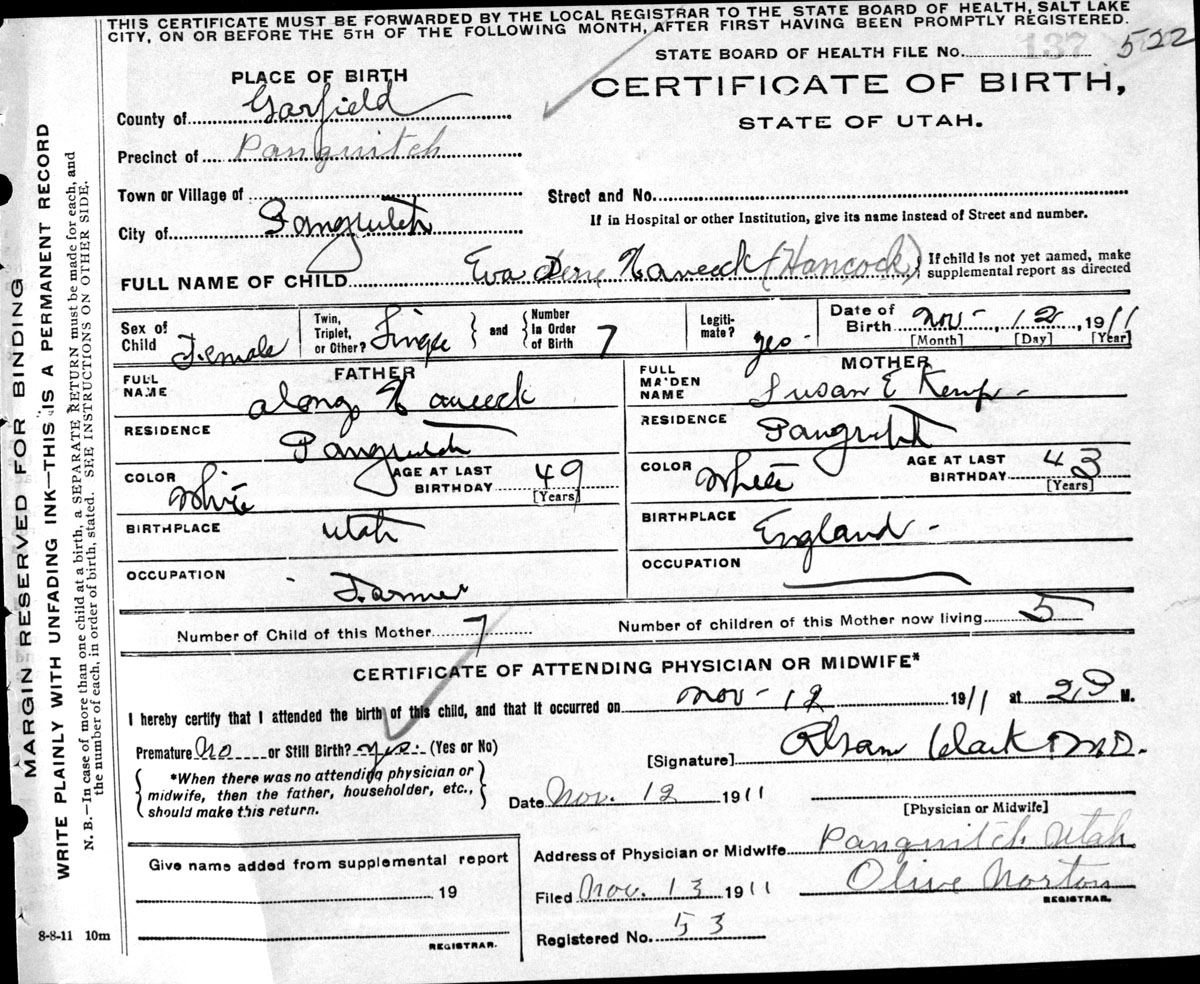 THIS CERTIFICATE MUST BE FORWARDED BY THE LOCAL REGISTRAR TO THE STATE BOARD OF HEALTH, SALT LAKE
CITY, ON OR BEFORE THE 5TH OF THE FOLLOWING MONTH, AFTER FIRST HAVING BEEN PROMPTLY REGISTERED.
STATE BOARD OF HEALTH FILE No. 137 522
PLACE OF BIRTH
CERTIFICATE OF BIRTH,
STATE OF UTAH.
County of Garfield
Precinct of Panguitch
Town or Village of
Street and No.
If in Hospital or other Institution, give its name instead of Street and number.
City of Panguitch
FULL NAME OF CHILD Eva Hancock (Hancock) If child is not yet named, make
supplemental report as directed
Sex of Child Female
Twin, Triplet, or Other? Single and Number In Order of Birth 7
Legiti-mate? yes
Date of Birth Nov- 12, 1911
[Month] [Day] [Year]
FATHER
FULL NAME Hancock
RESIDENCE Panguitch
COLOR White AGE AT LAST BIRTHDAY 49 [Years]
BIRTHPLACE Utah
OCCUPATION Farmer
MOTHER
FULL MAIDEN NAME Susan E Kemp-
RESIDENCE Panguitch
COLOR White AGE AT LAST BIRTHDAY 43 [Years]
BIRTHPLACE England-
OCCUPATION
Number of Child of this Mother 7 Number of children of this Mother now living 5
CERTIFICATE OF ATTENDING PHYSICIAN OR MIDWIFE*
I hereby certify that I attended the birth of this child, and that it occurred on Nov- 12 1911 at 2 P M.
Premature No or Still Birth? yes. (Yes or No)
[Signature] Clark M.D.
*When there was no attending physician or
midwife, then the father, householder, etc.,
should make this return.
Date Nov. 12 1911
[Physician or Midwife]
Give name added from supplemental report
19
REGISTRAR.
Address of Physician or Midwife Panguitch Utah
Filed Nov. 13 1911 Olive Norton
REGISTRAR.
Registered No. 53
8-8-11 10m
MARGIN RESERVED FOR BINDING
WRITE PLAINLY WITH UNFADING INK—THIS IS A PERMANENT RECORD
N. B.—In case of more than one child at a birth, a SEPARATE RETURN must be made for each, and
the number of each, in order of birth, stated. SEE INSTRUCTIONS ON OTHER SIDE.